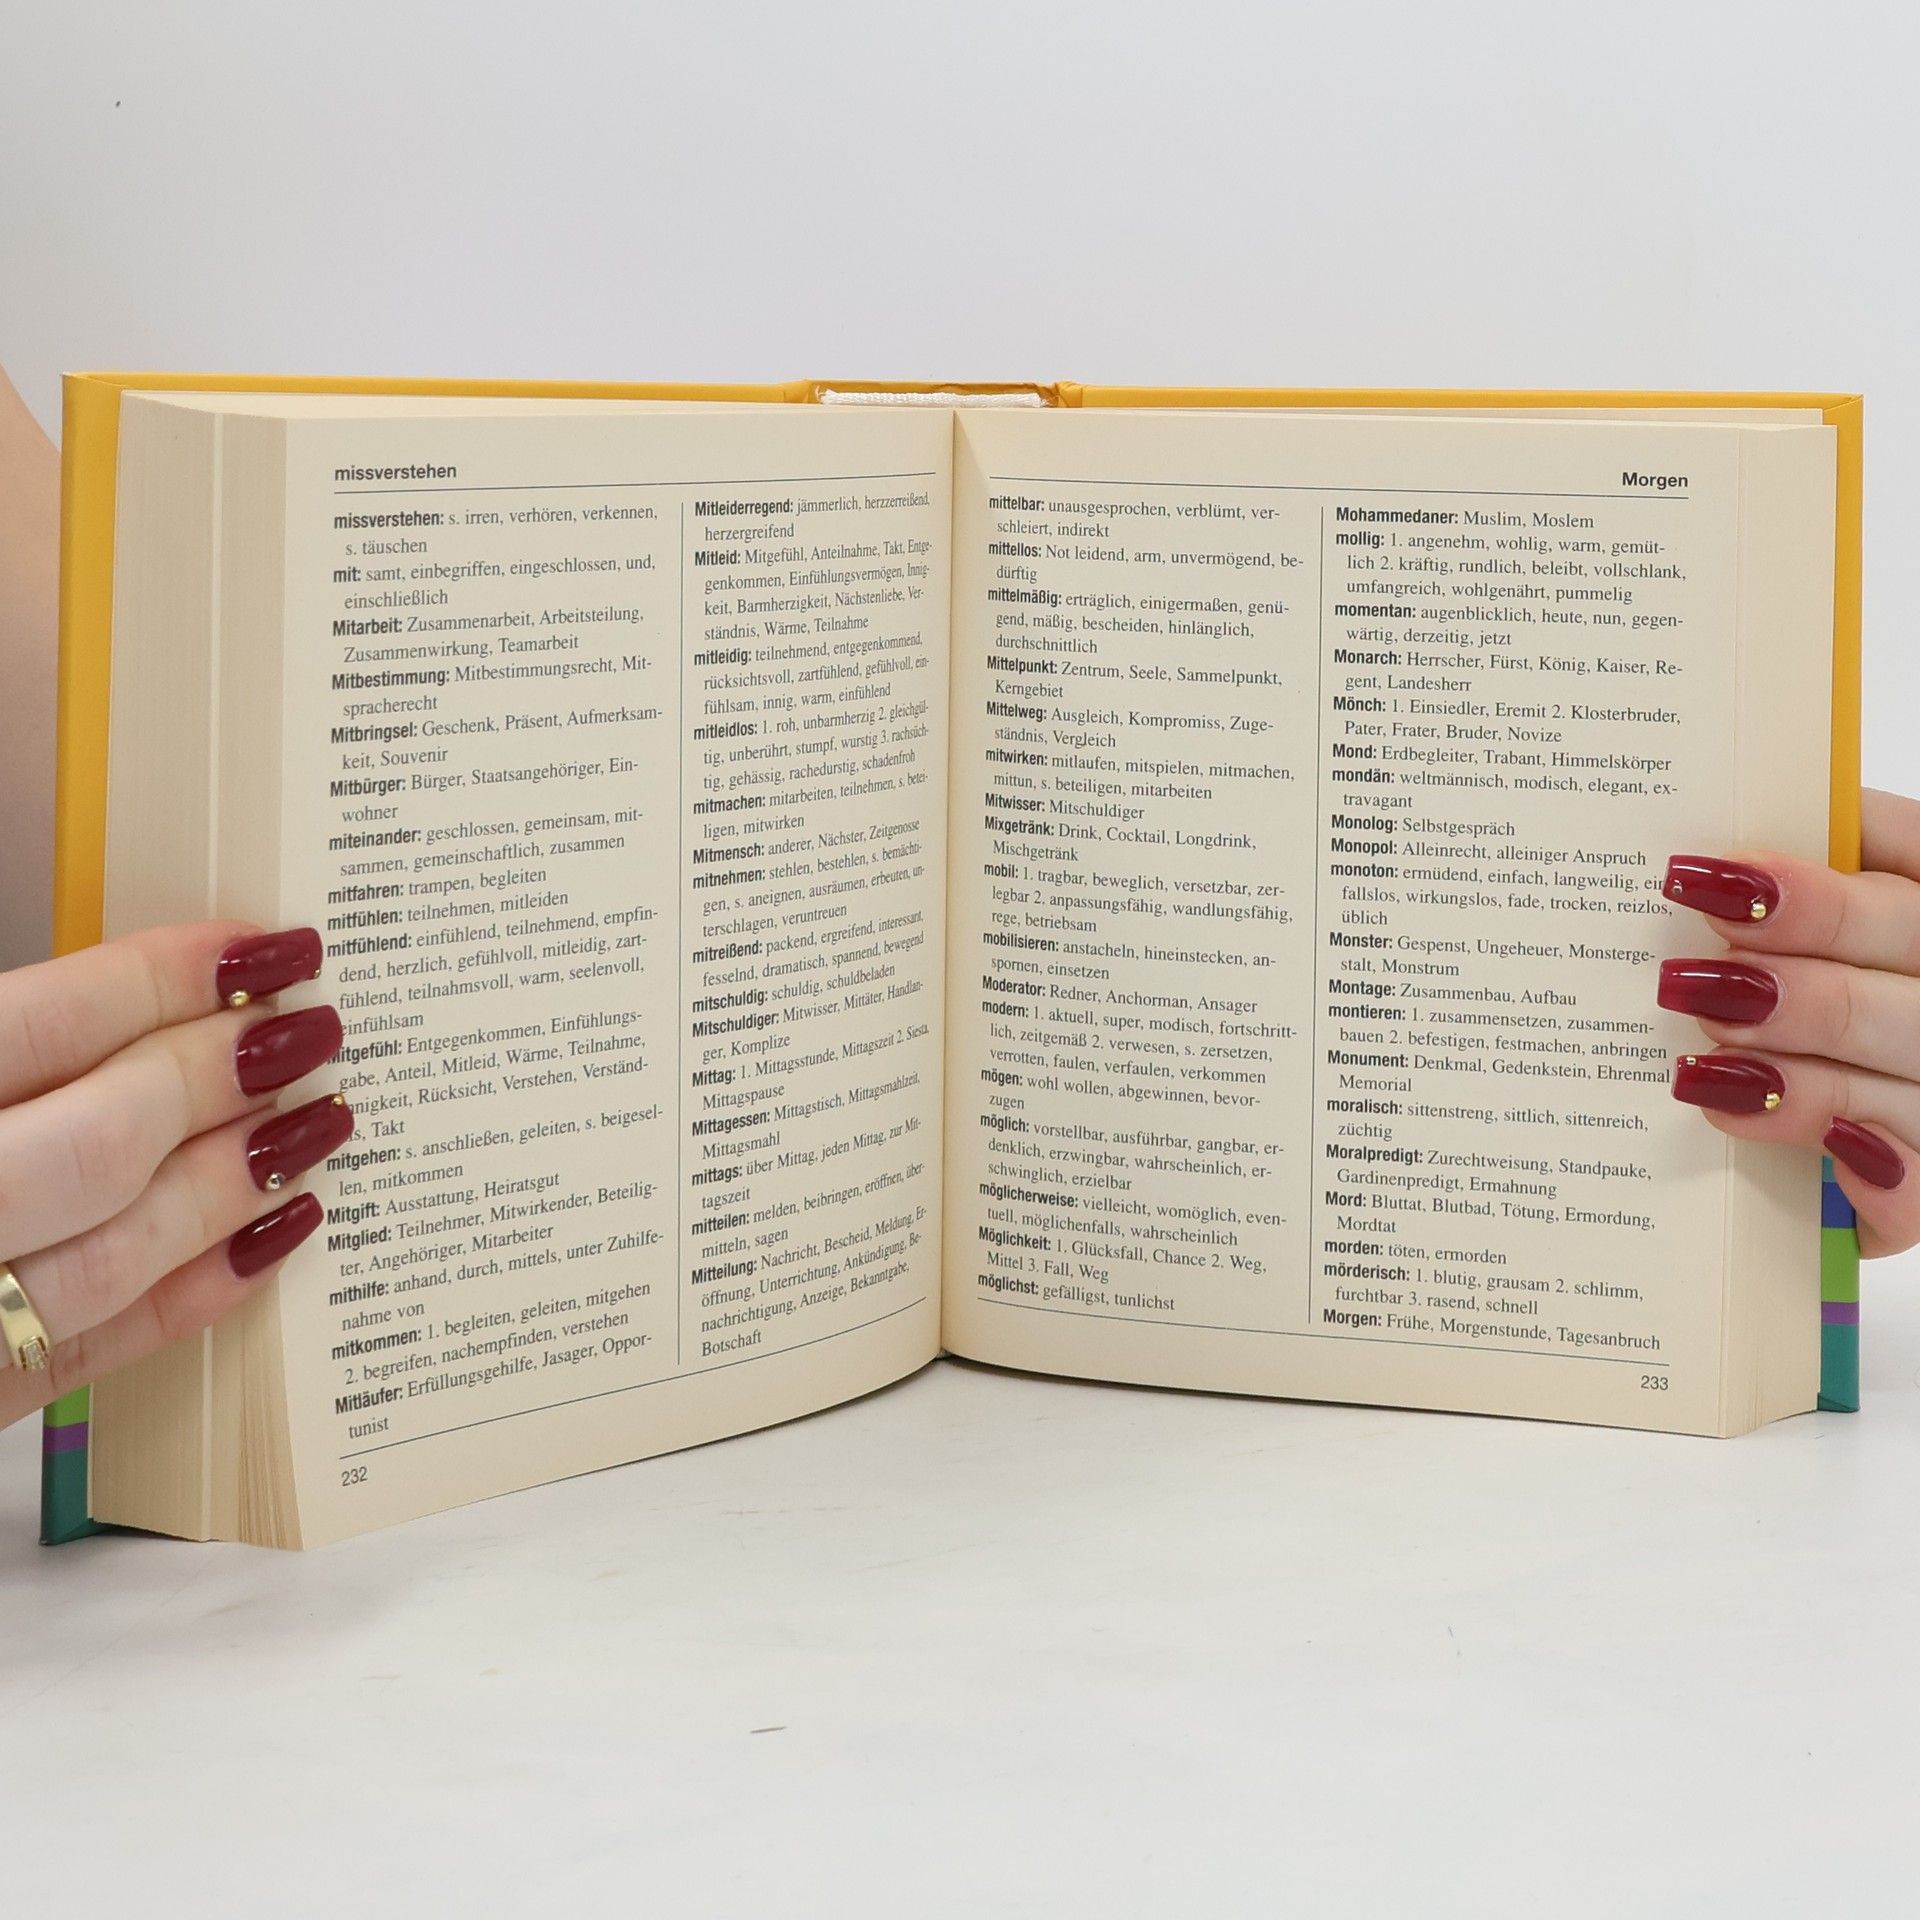 missverstehen
missverstehen: s. irren, verhören, verkennen,
s. täuschen
mit: samt, einbegriffen, eingeschlossen, und,
einschließlich
Mitarbeit: Zusammenarbeit, Arbeitsteilung,
Zusammenwirkung, Teamarbeit
Mitbestimmung: Mitbestimmungsrecht, Mit-
spracherecht
Mitbringsel: Geschenk, Präsent, Aufmerksam-
keit, Souvenir
Mitbürger: Bürger, Staatsangehöriger, Ein-
wohner
miteinander: geschlossen, gemeinsam, mit-
sammen, gemeinschaftlich, zusammen
mitfahren: trampen, begleiten
mitfühlen: teilnehmen, mitleiden
mitfühlend: einfühlend, teilnehmend, empfin-
dend, herzlich, gefühlvoll, mitleidig, zart-
fühlend, teilnahmsvoll, warm, seelenvoll,
einfühlsam
Mitgefühl: Entgegenkommen, Einfühlungs-
gabe, Anteil, Mitleid, Wärme, Teilnahme,
Rücksicht, Verstehen, Verständ-
Takt
mitgehen: s. anschließen, geleiten, s. beigesel-
len, mitkommen
Mitgift: Ausstattung, Heiratsgut
Mitglied: Teilnehmer, Mitwirkender, Beteilig-
ter, Angehöriger, Mitarbeiter
mithilfe: anhand, durch, mittels, unter Zuhilfe-
nahme von
mitkommen: 1. begleiten, geleiten, mitgehen
2. begreifen, nachempfinden, verstehen
Mitläufer: Erfüllungsgehilfe, Jasager, Oppor-
tunist
Mitleiderregend: jämmerlich, herzzerreißend,
herzergreifend
Mitleid: Mitgefühl, Anteilnahme, Takt, Entge-
genkommen, Einfühlungsvermögen, Innig-
keit, Barmherzigkeit, Nächstenliebe, Ver-
ständnis, Wärme, Teilnahme
mitleidig: teilnehmend, entgegenkommend,
rücksichtsvoll, zartfühlend, gefühlvoll, ein-
fühlsam, innig, warm, einfühlend
mitleidlos: 1. roh, unbarmherzig 2. gleichgül-
tig, unberührt, stumpf, wurstig 3. rachsüch-
tig, gehässig, rachedurstig, schadenfroh
mitmachen: mitarbeiten, teilnehmen, s. betei-
ligen, mitwirken
Mitmensch: anderer, Nächster, Zeitgenosse
mitnehmen: stehlen, bestehlen, s. bemächti-
gen, s. aneignen, ausräumen, erbeuten, un-
terschlagen, veruntreuen
mitreißend: packend, ergreifend, interessant,
fesselnd, dramatisch, spannend, bewegend
mitschuldig: schuldig, schuldbeladen
Mitschuldiger: Mitwisser, Mittäter, Handlan-
ger, Komplize
Mittag: 1. Mittagsstunde, Mittagszeit 2. Siesta,
Mittagspause
Mittagessen: Mittagstisch, Mittagsmahlzeit,
Mittagsmahl
mittags: über Mittag, jeden Mittag, zur Mit-
tagszeit
mitteilen: melden, beibringen, eröffnen, über-
mitteln, sagen
Mitteilung: Nachricht, Bescheid, Meldung, Er-
öffnung, Unterrichtung, Ankündigung, Be-
nachrichtigung, Anzeige, Bekanntgabe,
Botschaft
232
Morgen
mittelbar: unausgesprochen, verblümt, ver-
schleiert, indirekt
mittellos: Not leidend, arm, unvermögend, be-
dürftig
mittelmäßig: erträglich, einigermaßen, genü-
gend, mäßig, bescheiden, hinlänglich,
durchschnittlich
Mittelpunkt: Zentrum, Seele, Sammelpunkt,
Kerngebiet
Mittelweg: Ausgleich, Kompromiss, Zuge-
ständnis, Vergleich
mitwirken: mitlaufen, mitspielen, mitmachen,
mittun, s. beteiligen, mitarbeiten
Mitwisser: Mitschuldiger
Mixgetränk: Drink, Cocktail, Longdrink,
Mischgetränk
mobil: 1. tragbar, beweglich, versetzbar, zer-
legbar 2. anpassungsfähig, wandlungsfähig,
rege, betriebsam
mobilisieren: anstacheln, hineinstecken, an-
spornen, einsetzen
Moderator: Redner, Anchorman, Ansager
modern: 1. aktuell, super, modisch, fortschritt-
lich, zeitgemäß 2. verwesen, s. zersetzen,
verrotten, faulen, verfaulen, verkommen
mögen: wohl wollen, abgewinnen, bevor-
zugen
möglich: vorstellbar, ausführbar, gangbar, er-
denklich, erzwingbar, wahrscheinlich, er-
schwinglich, erzielbar
möglicherweise: vielleicht, womöglich, even-
tuell, möglichenfalls, wahrscheinlich
Möglichkeit: 1. Glücksfall, Chance 2. Weg,
Mittel 3. Fall, Weg
möglichst: gefälligst, tunlichst
Mohammedaner: Muslim, Moslem
mollig: 1. angenehm, wohlig, warm, gemüt-
lich 2. kräftig, rundlich, beleibt, vollschlank,
umfangreich, wohlgenährt, pummelig
momentan: augenblicklich, heute, nun, gegen-
wärtig, derzeitig, jetzt
Monarch: Herrscher, Fürst, König, Kaiser, Re-
gent, Landesherr
Mönch: 1. Einsiedler, Eremit 2. Klosterbruder,
Pater, Frater, Bruder, Novize
Mond: Erdbegleiter, Trabant, Himmelskörper
mondän: weltmännisch, modisch, elegant, ex-
travagant
Monolog: Selbstgespräch
Monopol: Alleinrecht, alleiniger Anspruch
monoton: ermüdend, einfach, langweilig, ein
fallslos, wirkungslos, fade, trocken, reizlos,
üblich
Monster: Gespenst, Ungeheuer, Monsterge-
stalt, Monstrum
Montage: Zusammenbau, Aufbau
montieren: 1. zusammensetzen, zusammen-
bauen 2. befestigen, festmachen, anbringen
Monument: Denkmal, Gedenkstein, Ehrenmal
Memorial
moralisch: sittenstreng, sittlich, sittenreich,
züchtig
Moralpredigt: Zurechtweisung, Standpauke,
Gardinenpredigt, Ermahnung
Mord: Bluttat, Blutbad, Tötung, Ermordung,
Mordtat
morden: töten, ermorden
mörderisch: 1. blutig, grausam 2. schlimm,
furchtbar 3. rasend, schnell
Morgen: Frühe, Morgenstunde, Tagesanbruch
233